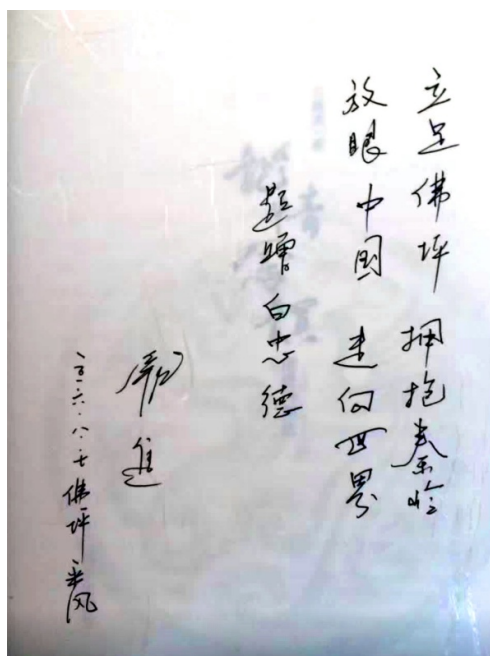 立足佛坪 拥抱秦岭
放眼中国 走向世界
题赠白忠德
二〇一六·八·七佛坪采风